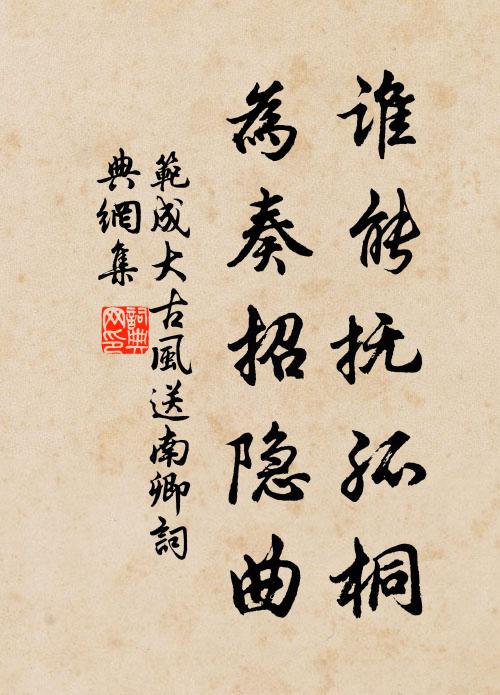 谁能抚孤桐
為奏招隐曲
範成大古風送南卿詞
典網集
詞典
网印